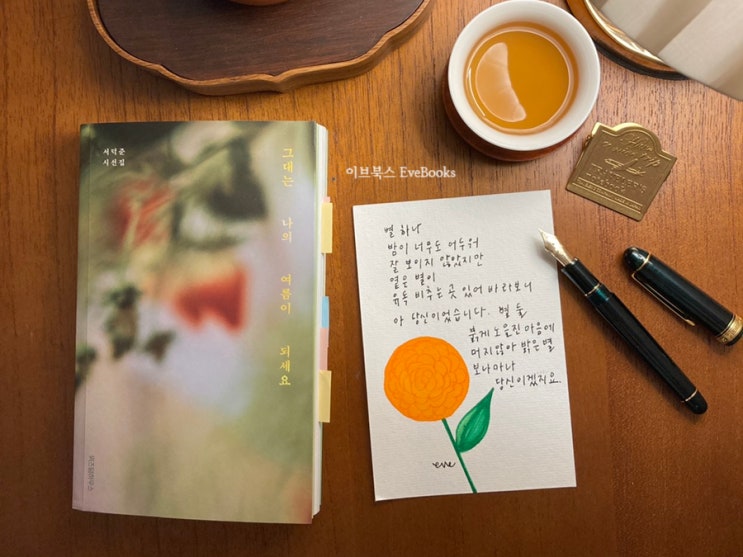 서덕준
시선집
그대는 나의 여름이 되세요
위즈덤하우스
이브북스 EveBooks
별 하나
밤이 너무도 어두워
잘 보이지 않았지만
옅은 별이
유독 비추는 곳 있어 바라보니
아 당신이었습니다. 별 둘
붉게 노을진 마음에
머지않아 밝은 별
보나마나
당신이겠지요.
eve